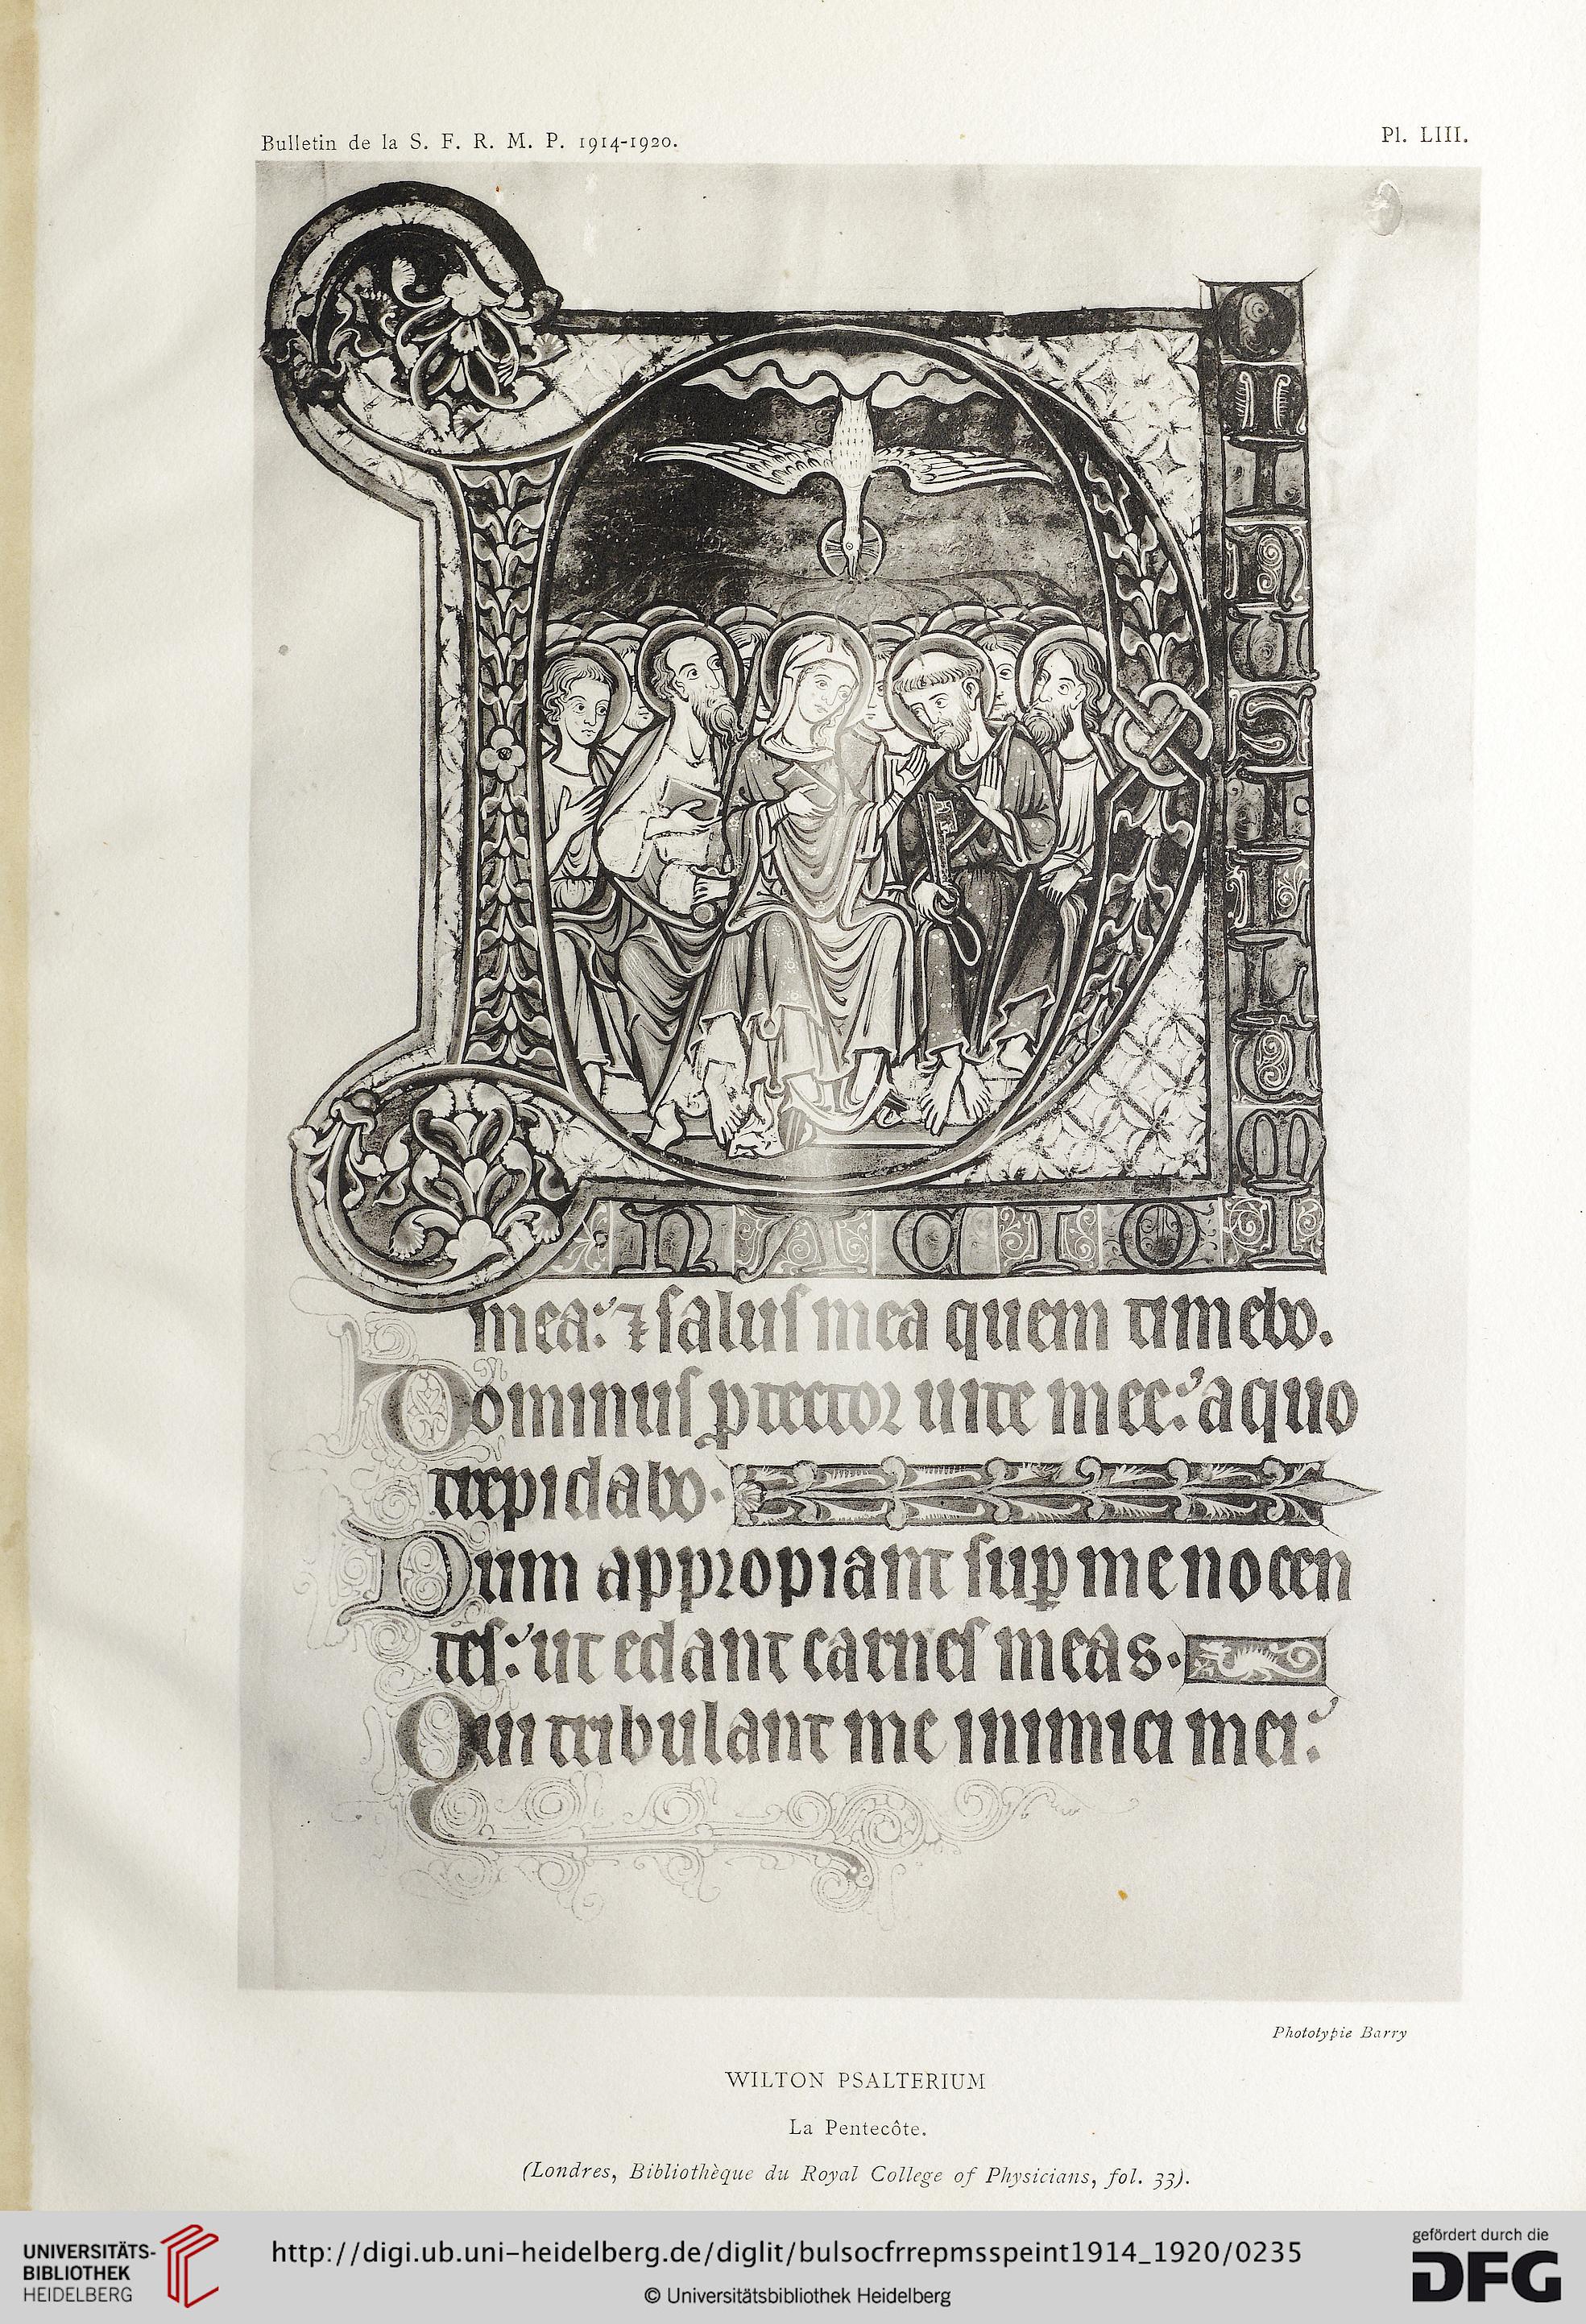 Bulletin de la S. F. R. M. P. 1914-1920.
Pl. LIII.
D
OMINUS ILLUMI
NACIO
mea: ⁊ saluſ mea quem timebo.
Dominuſ ꝓtectoꝛ uite mee: a quo
trepidabo.
Dum appꝛopiant ſuꝑ me nocen
teſ: ut edant carneſ meas.
Qui tribulant me inimici mei:
Phototypie Barry
WILTON PSALTERIUM
La Pentecôte.
(Londres, Bibliothèque du Royal College of Physicians, fol. 33).
UNIVERSITÄTS-
BIBLIOTHEK
HEIDELBERG
http://digi.ub.uni-heidelberg.de/diglit/bulsocfrrepmsspeint1914_1920/0235
© Universitätsbibliothek Heidelberg
gefördert durch die
DFG